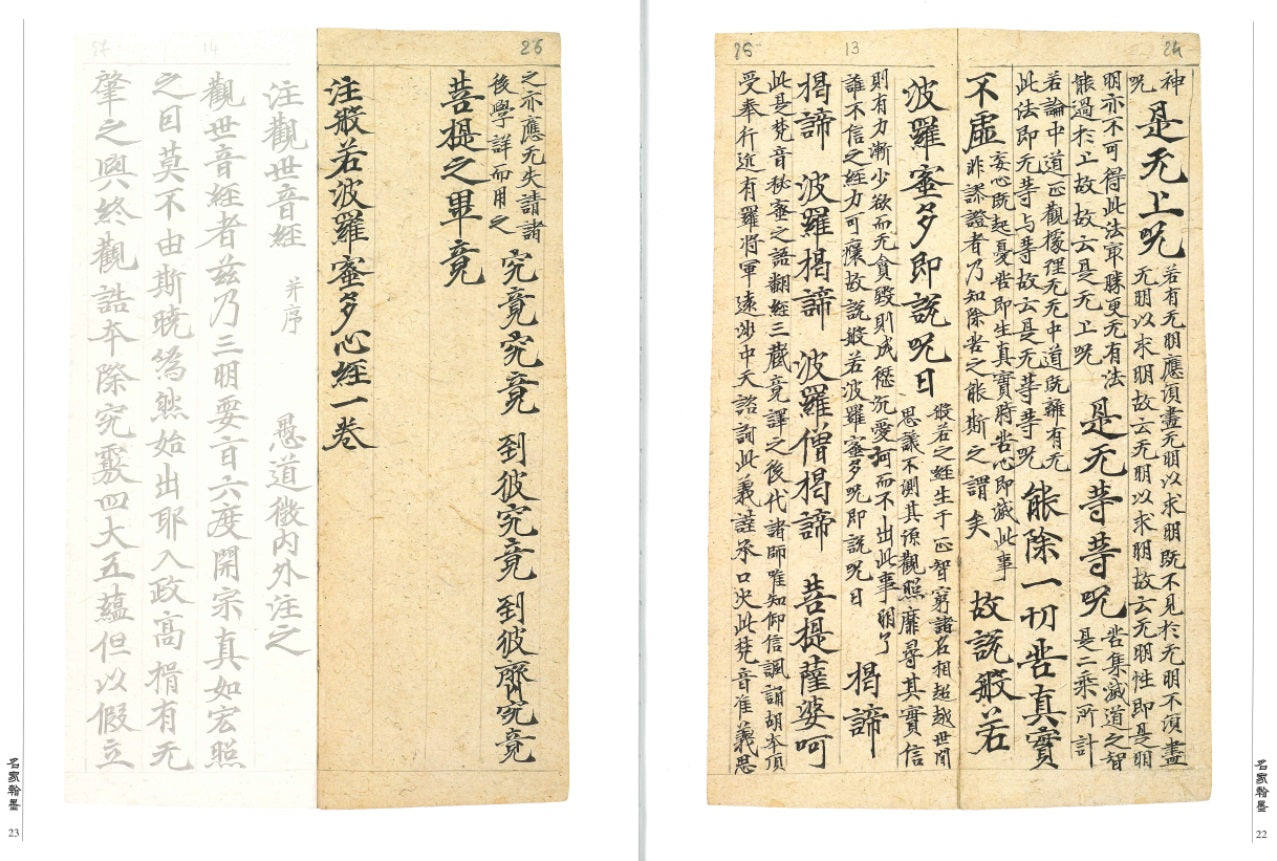 24
13
25
神
呪
是无上呪
若有无明應須盡无明以求明既不見於无明不須盡
无明以求明故云无明以求明故云无明性即是明
明亦不可得此法軍勝更无有法
能過於上故故云是无上呪
是无等等呪
苦集滅道之智
是二乘所計
若論中道正觀據理无无中道既離有无
此法即无等与等故云是无等等呪
能除一切苦真實
不虛
妄心既起憂苦即生真實時苦心即滅此事
非深證者乃知除苦之能斯之謂矣
故説般若
波羅蜜多即説呪曰
般若之經生于正智窮諸名相超越世間
思議不測其源觀照靡尋其實信
則有力漸少欲而无貪毀則成愆沉愛河而不出此事明了
誰不信之經力可癢故説般若波羅蜜多呪即説呪曰
揭諦
揭諦 波羅揭諦 波羅僧揭諦 菩提薩婆呵
此是梵音秘蜜之語翻經三藏竟譯之後代諸師唯知仰信諷誦胡本頂
受奉行進有羅將軍遠涉中天諮詢此義謹承口决此梵音准義思
名家翰墨
22
26
14
27
之亦應无失請諸
後學詳而用之
究竟究竟 到彼究竟 到彼齊究竟
菩提之畢竟
注般若波羅蜜多心經一卷
注觀世音經 并序 愚道徵内外注之
觀世音經者兹乃三明要百六度開宗真如宏照
之目莫不由斯曉為然始出耶入政高楫有无
肇之興終觀誥本際究覈四大五蘊但以假立
名家翰墨
23